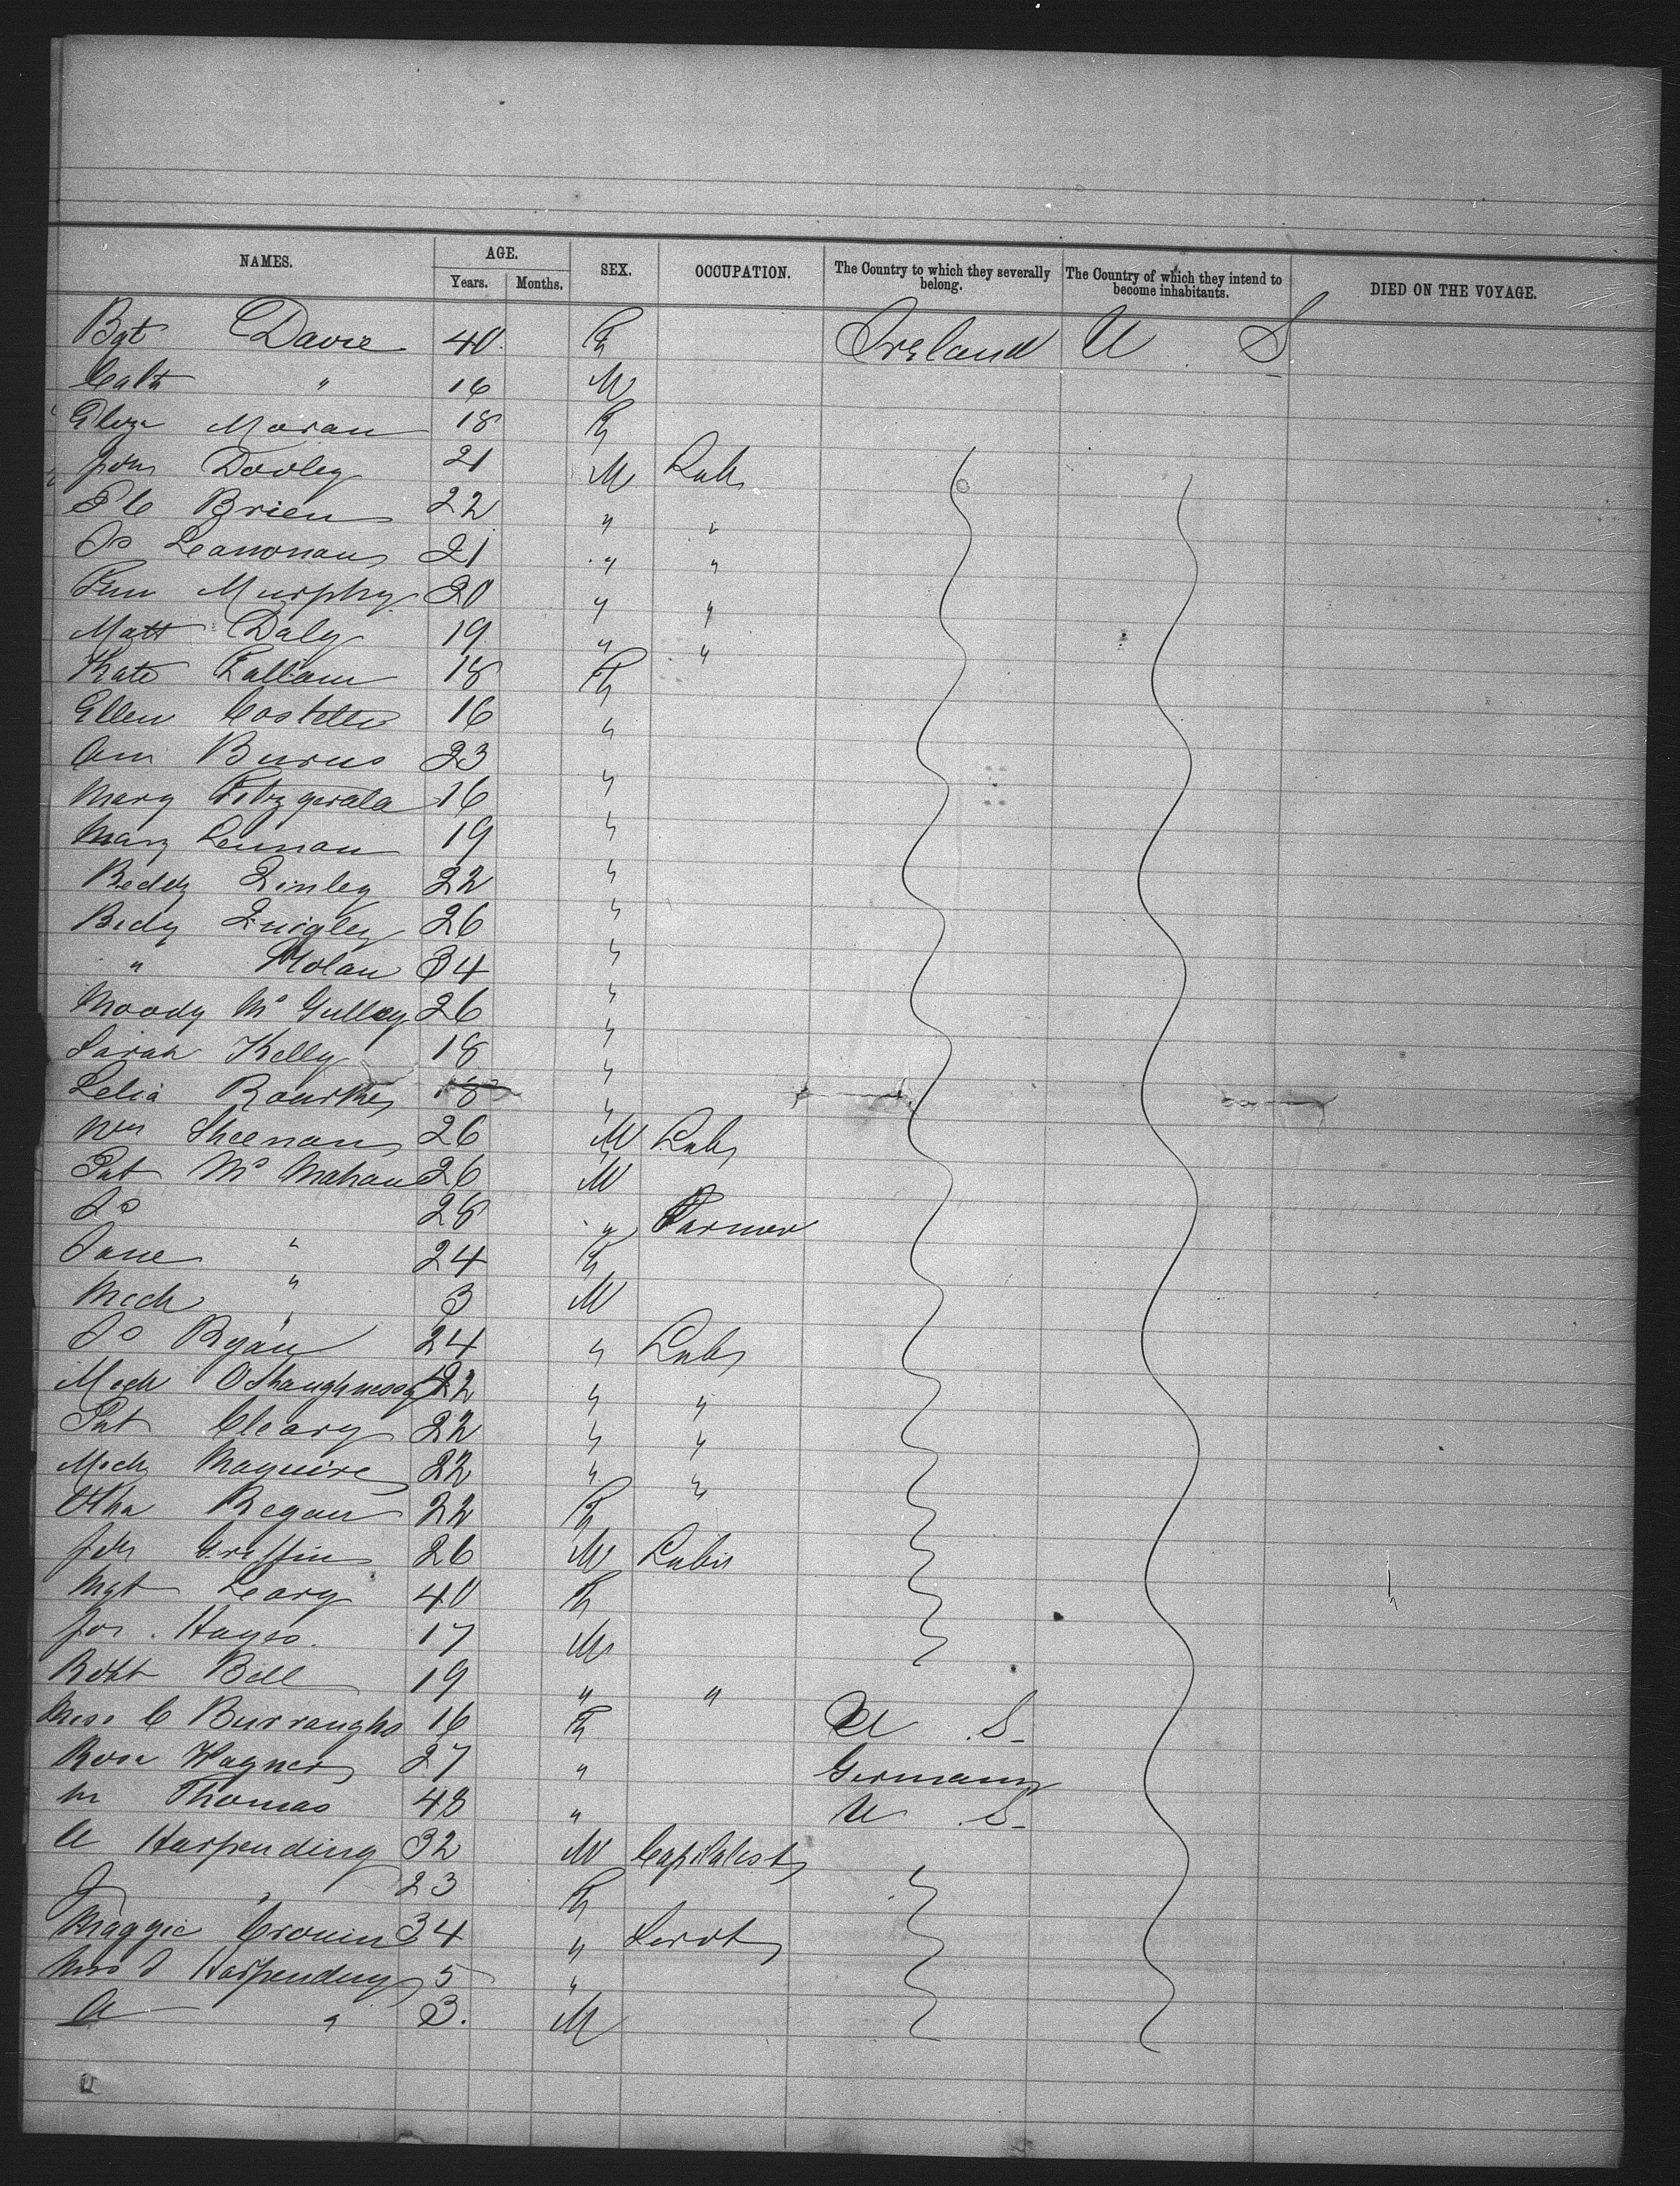 NAMES. AGE. SEX. OCCUPATION. The Country to which they severally belong. The Country of which they intend to become inhabitants. DIED ON THE VOYAGE.
Years. Months.
Bgt Davie 40 F Ireland U S
Cath " 16 M
Eliza Moran 18 F
John Dooley 21 M Labr
Brien 22 " "
Jo 21 " "
Murphy 20 " "
Matt Daly 19 " "
Kate Fallam 18 F
Ellen Costello 16 "
Ann Burns 23 "
Mary Fitzgerald 16 "
Mary Lennan 19 "
Beddy Kinley 22 "
Bidy Quigley 26 "
" Nolan 34 "
Moody Mc Gulley 26 "
Sarah Kelly 18 "
Lelia Rourke 18 "
Wm Sheenan 26 M Labr
Pat Mc Mahon 26 M
Jo " 28 " Farmer
Jane " 24 F
Mich " 3 M
Jo Ryan 24 " Labr
Mich OShaughnessy 22 " "
Pat Cleary 22 " "
Mich Maguire 22 " "
Regan 22 F
Jno Griffin 26 M Labr
Mgt Leary 40 F
Jos. Hayes. 17 M
Robt Bell 19 " "
Miss C Burraughs 16 F U S
Rosa Wagner 27 " Germany
M Thomas 48 " U S
A Harpending 32 M Capitalist
J " 23 F
Maggie Cronin 34 " Servt
Harpending 5 "
A " 3. M